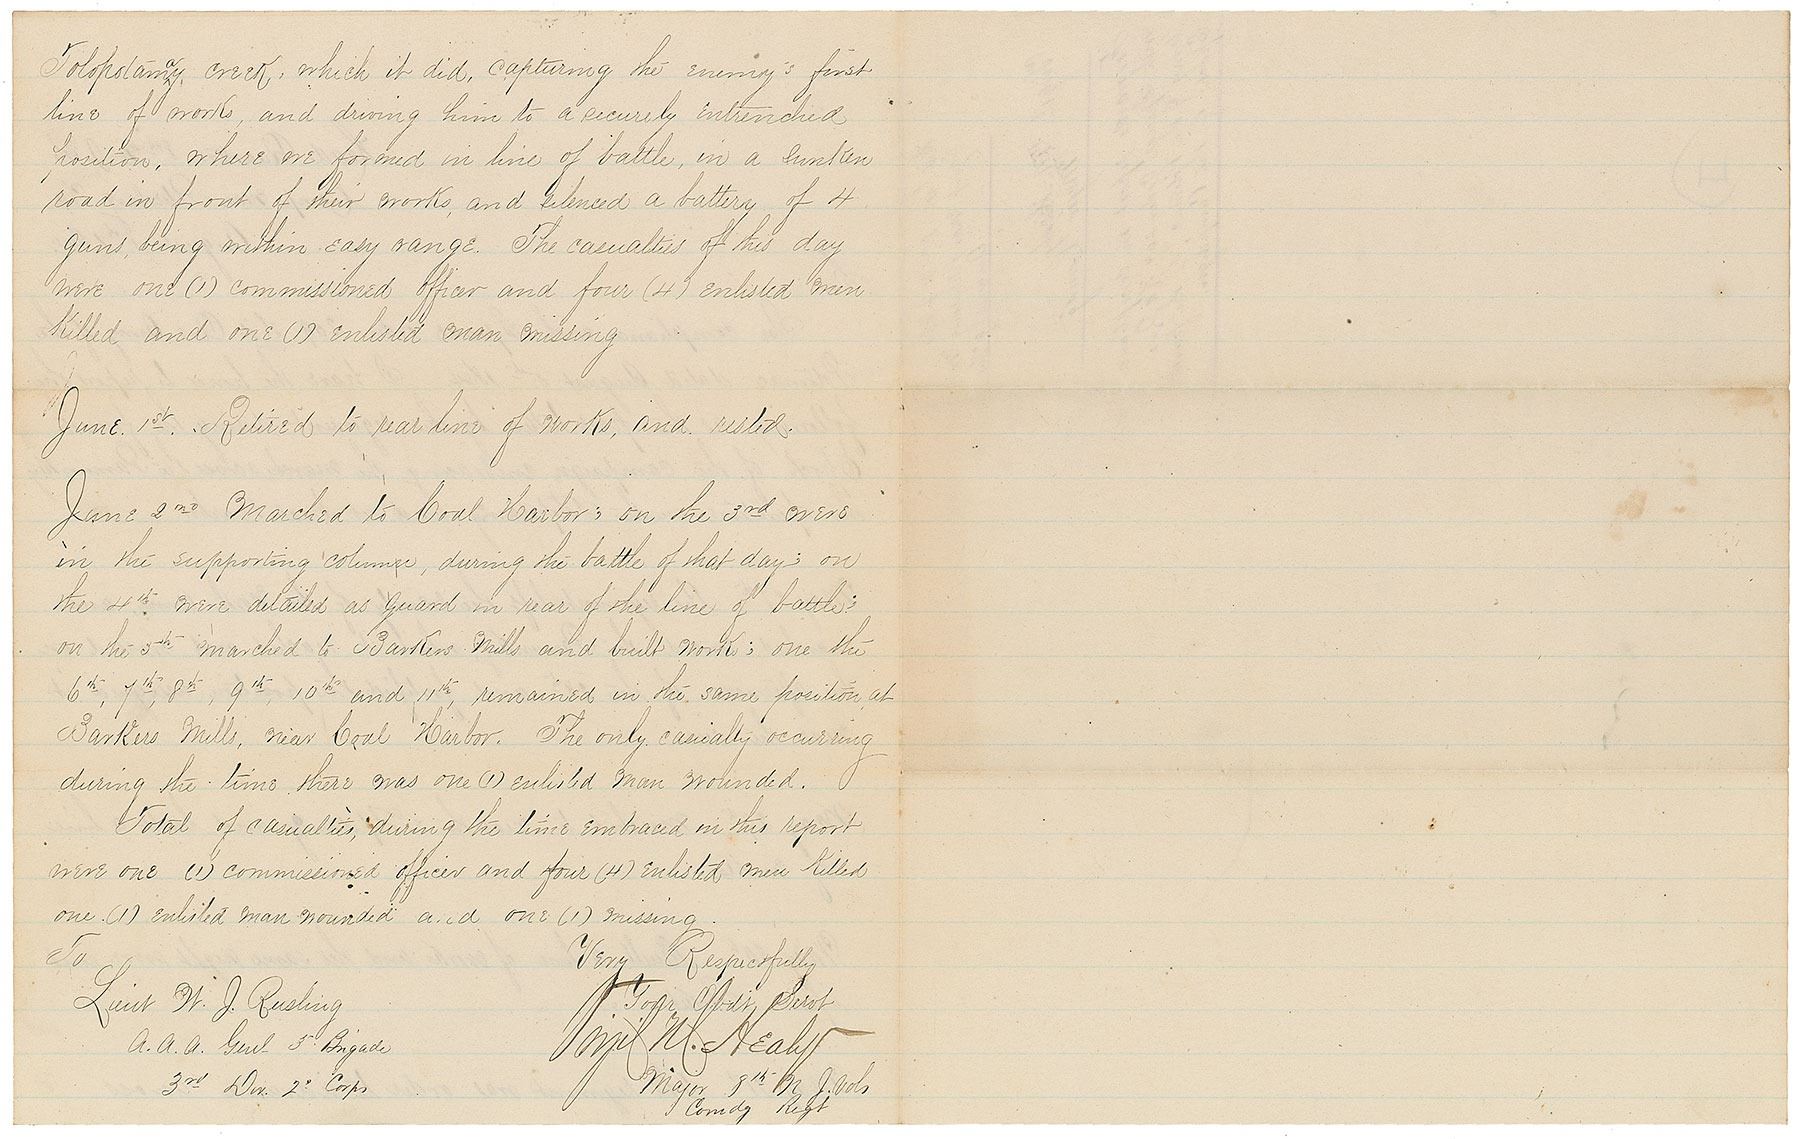 Tolopotamy creek, which it did, capturing the enemy's first
line of works, and driving him to a securely entrenched
position, where we formed in line of battle, in a sunken
road in front of their works, and silenced a battery of 4
guns, being within easy range. The casualties of this day
were one (1) commissioned officer and four (4) enlisted men
killed and one (1) enlisted man missing
June. 1st. Retired to rear line of works, and rested.
June 2nd Marched to Coal Harbor: on the 3rd were
in the supporting column, during the battle of that day: on
the 4th were detailed as guard in rear of the line of battle:
on the 5th marched to Barkers Mills and built works: one the
6th, 7th, 8th, 9th, 10th and 11th, remained in the same position, at
Barkers Mills, near Coal Harbor. The only casualty occurring
during the time there was one (1) enlisted man wounded.
Total of casualties, during the time embraced in this report
were one (1) commissioned officer and four (4) enlisted men killed
one (1) enlisted man wounded and one (1) missing.
To Very Respectfully
Lieut W. J. Rusling Your Obdt Servt
Virgil M. Healy
A. A. A. Genl 5th Brigade
3rd Div. 2d Corps Major 8th N. J. Vols
Comdg Regt